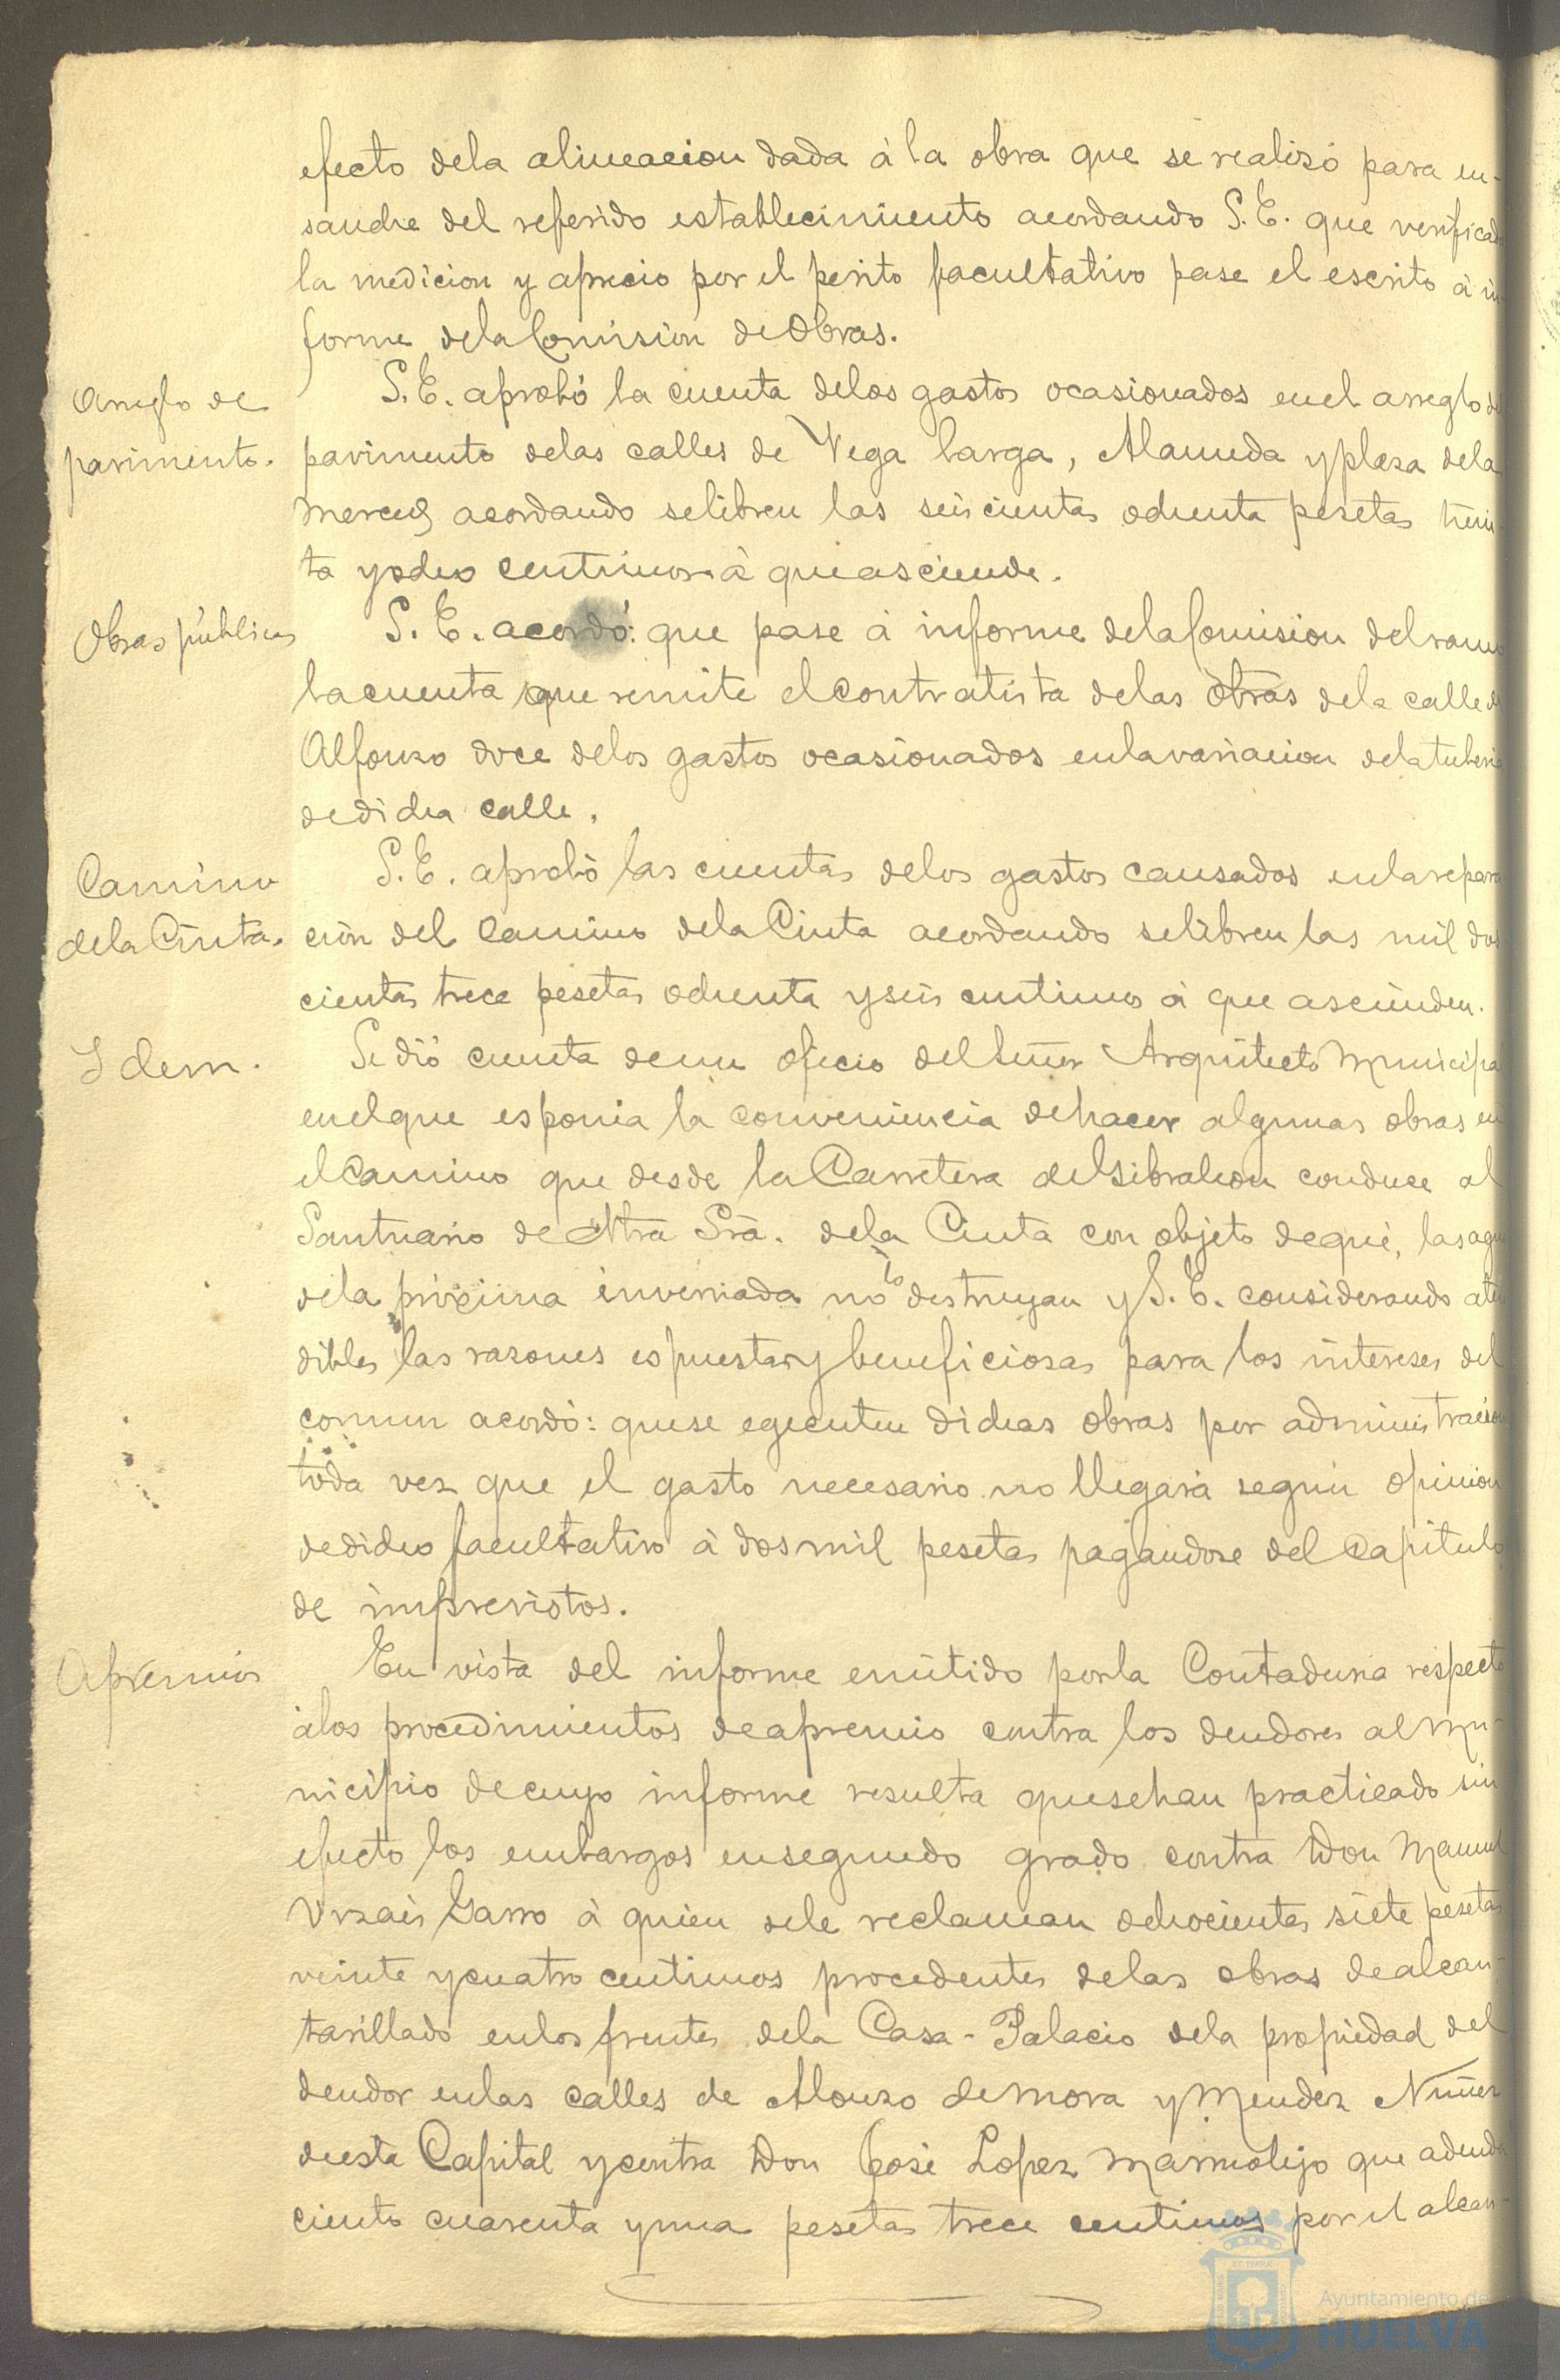 efecto dela alineacion dada à la obra que se realizó para en-
sanche del referido establecimiento acordando S.E. que verificada
la medicion y aprecio por el perito facultativo pase el escrito à in
forme dela Comision de Obras.
Arreglo de
pavimento.
S.E. aprobó la cuenta delos gastos ocasionados en el arreglo del
pavimento delas calles de Vega larga, Alameda y plaza dela
Merced acordando se libren las seiscientas ochenta pesetas trein-
ta y ocho centimos à que asciende.
Obras públicas
S.E. acordó: que pase à informe dela Comision del ramo
la cuenta que remite el contratista delas obras dela calle de
Alfonso doce delos gastos ocasionados en la variacion dela tuberia
de dicha calle.
Camino
dela Cinta.
S.E. aprobó las cuentas delos gastos causados en la repara
ción del Camino dela Cinta acordando se libren las mil dos
cientas trece pesetas ochenta y seis centimos à que ascienden.
Idem.
Se dió cuenta de un oficio del Señor Arquitecto Municipal
en el que esponia la conveniencia de hacer algunas obras en
el Camino que desde la Carretera de Gibraleon conduce al
Santuario de Ntra Srà. dela Cinta con objeto de que, las aguas
dela próxima invernada no lo destruyan y S.E. considerando aten
dibles las razones espuestas y beneficiosas para los intereses del
comun acordó: que se egecuten dichas obras por administracion
toda vez que el gasto necesario no llegará segun opinion
de dicho facultativo à dos mil pesetas pagandose del Capitulo
de imprevistos.
Apremios
En vista del informe emitido por la Contaduria respecto
à los procedimientos de apremio contra los deudores al Mu-
nicipio de cuyo informe resulta que se han practicado sin
efecto los embargos en segundo grado contra Don Manuel
Vrzais Garro à quien se le reclaman ochocientas siete pesetas
veinte y cuatro centimos procedentes delas obras de alcan-
tarillado en los frentes dela Casa-Palacio dela propiedad del
deudor en las calles de Alonso de Mora y Mendez Nuñez
de esta Capital y contra Don José Lopez Marmolejo que adeuda
ciento cuarenta y una pesetas trece centimos por el alcan-
Ayuntamiento de
HUELVA